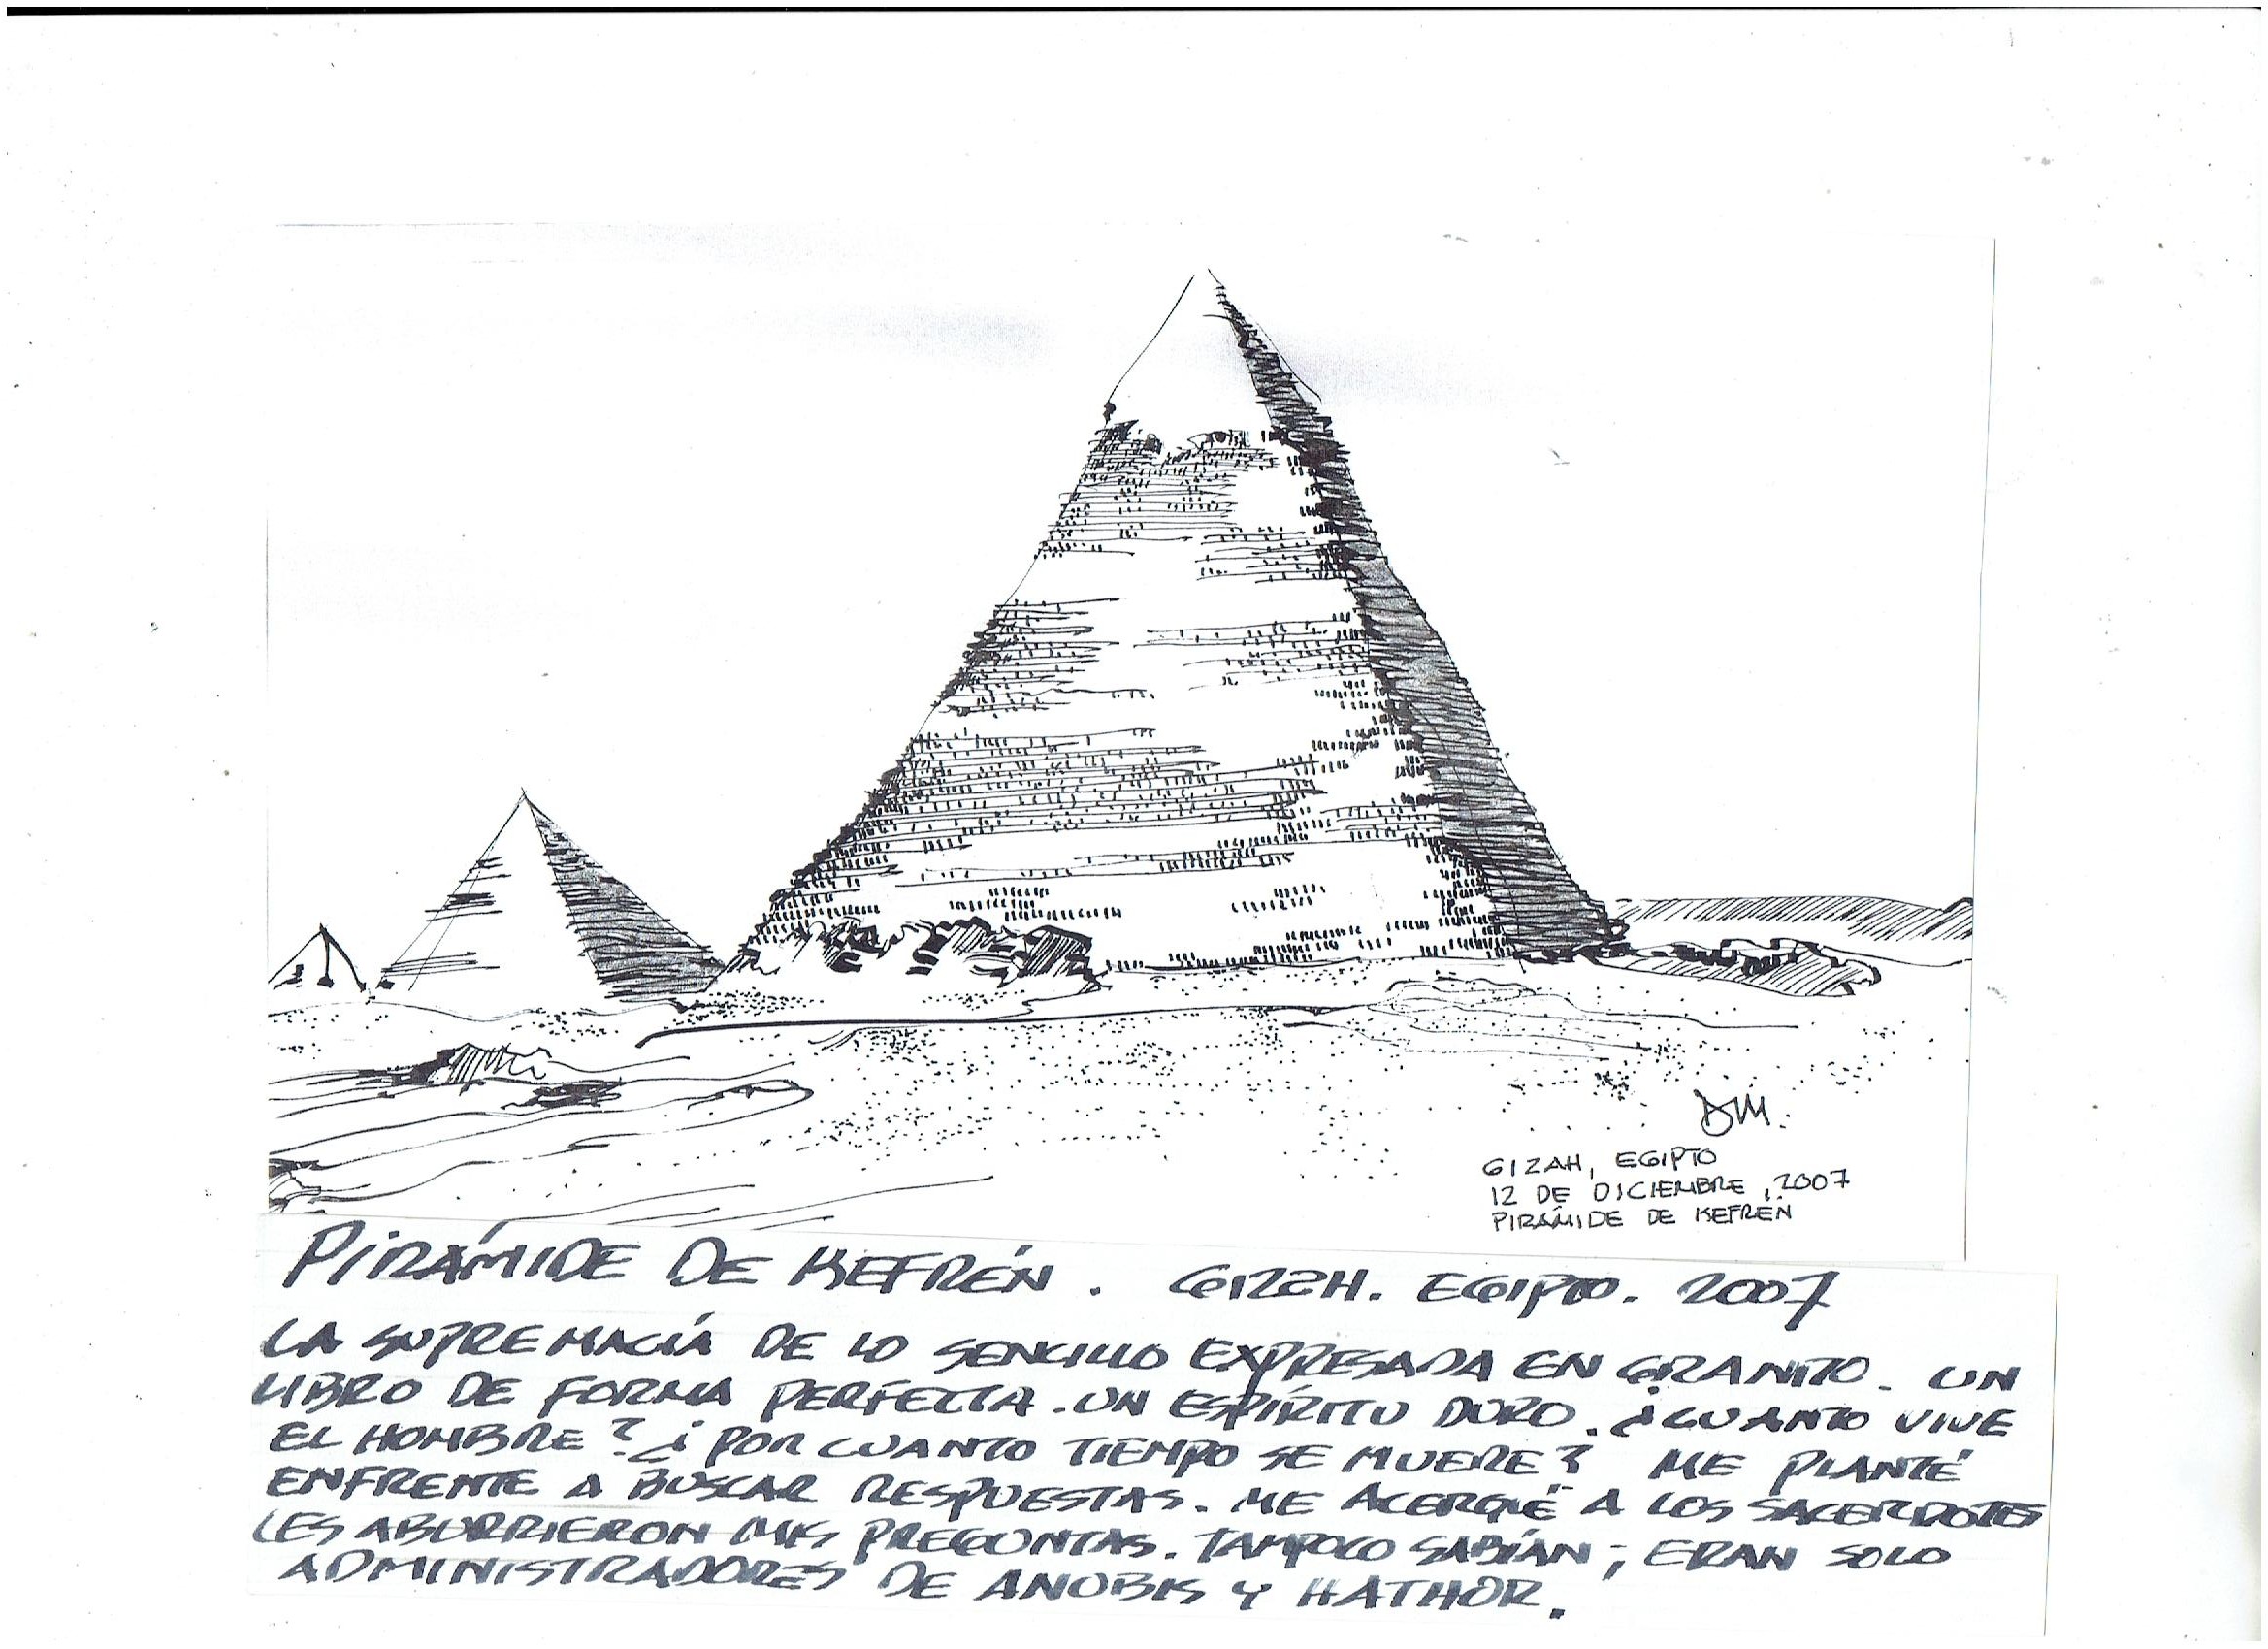 DM.
GIZAH, EGIPTO
12 DE DICIEMBRE, 2007
PIRÁMIDE DE KEFRÉN
PIRÁMIDE DE KEFRÉN. GIZAH. EGIPTO. 2007
LA SUPREMACIÁ DE LO SENCILLO EXPRESADA EN GRANITO. UN
LIBRO DE FORMA PERFECTA. UN ESPÍRITU DURO. ¿CUANTO VIVE
EL HOMBRE? ¿POR CUANTO TIEMPO SE MUERE? ME PLANTÉ
ENFRENTE A BUSCAR RESPUESTAS. ME ACERQUÉ A LOS SACERDOTES
LES ABURRIERON MIS PREGUNTAS. TAMPOCO SABÍAN; ERAN SOLO
ADMINISTRADORES DE ANOBIS Y HATHOR.